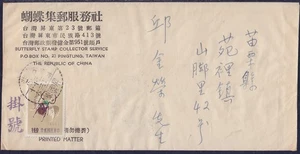 蝴蝶集郵服務社
台灣屏東市33號郵箱
台灣屏東市民族路413號
BUTTERFLY STAMP COLLECTOR SERVICE
P.O-BOX NO. 33 PINGTUNG, TAIWAN
THE REPUBLIC OF CHINA
掛號
PRINTED MATTER
苗栗縣
苑裡鎮
山脚里42号
邱金榮先生